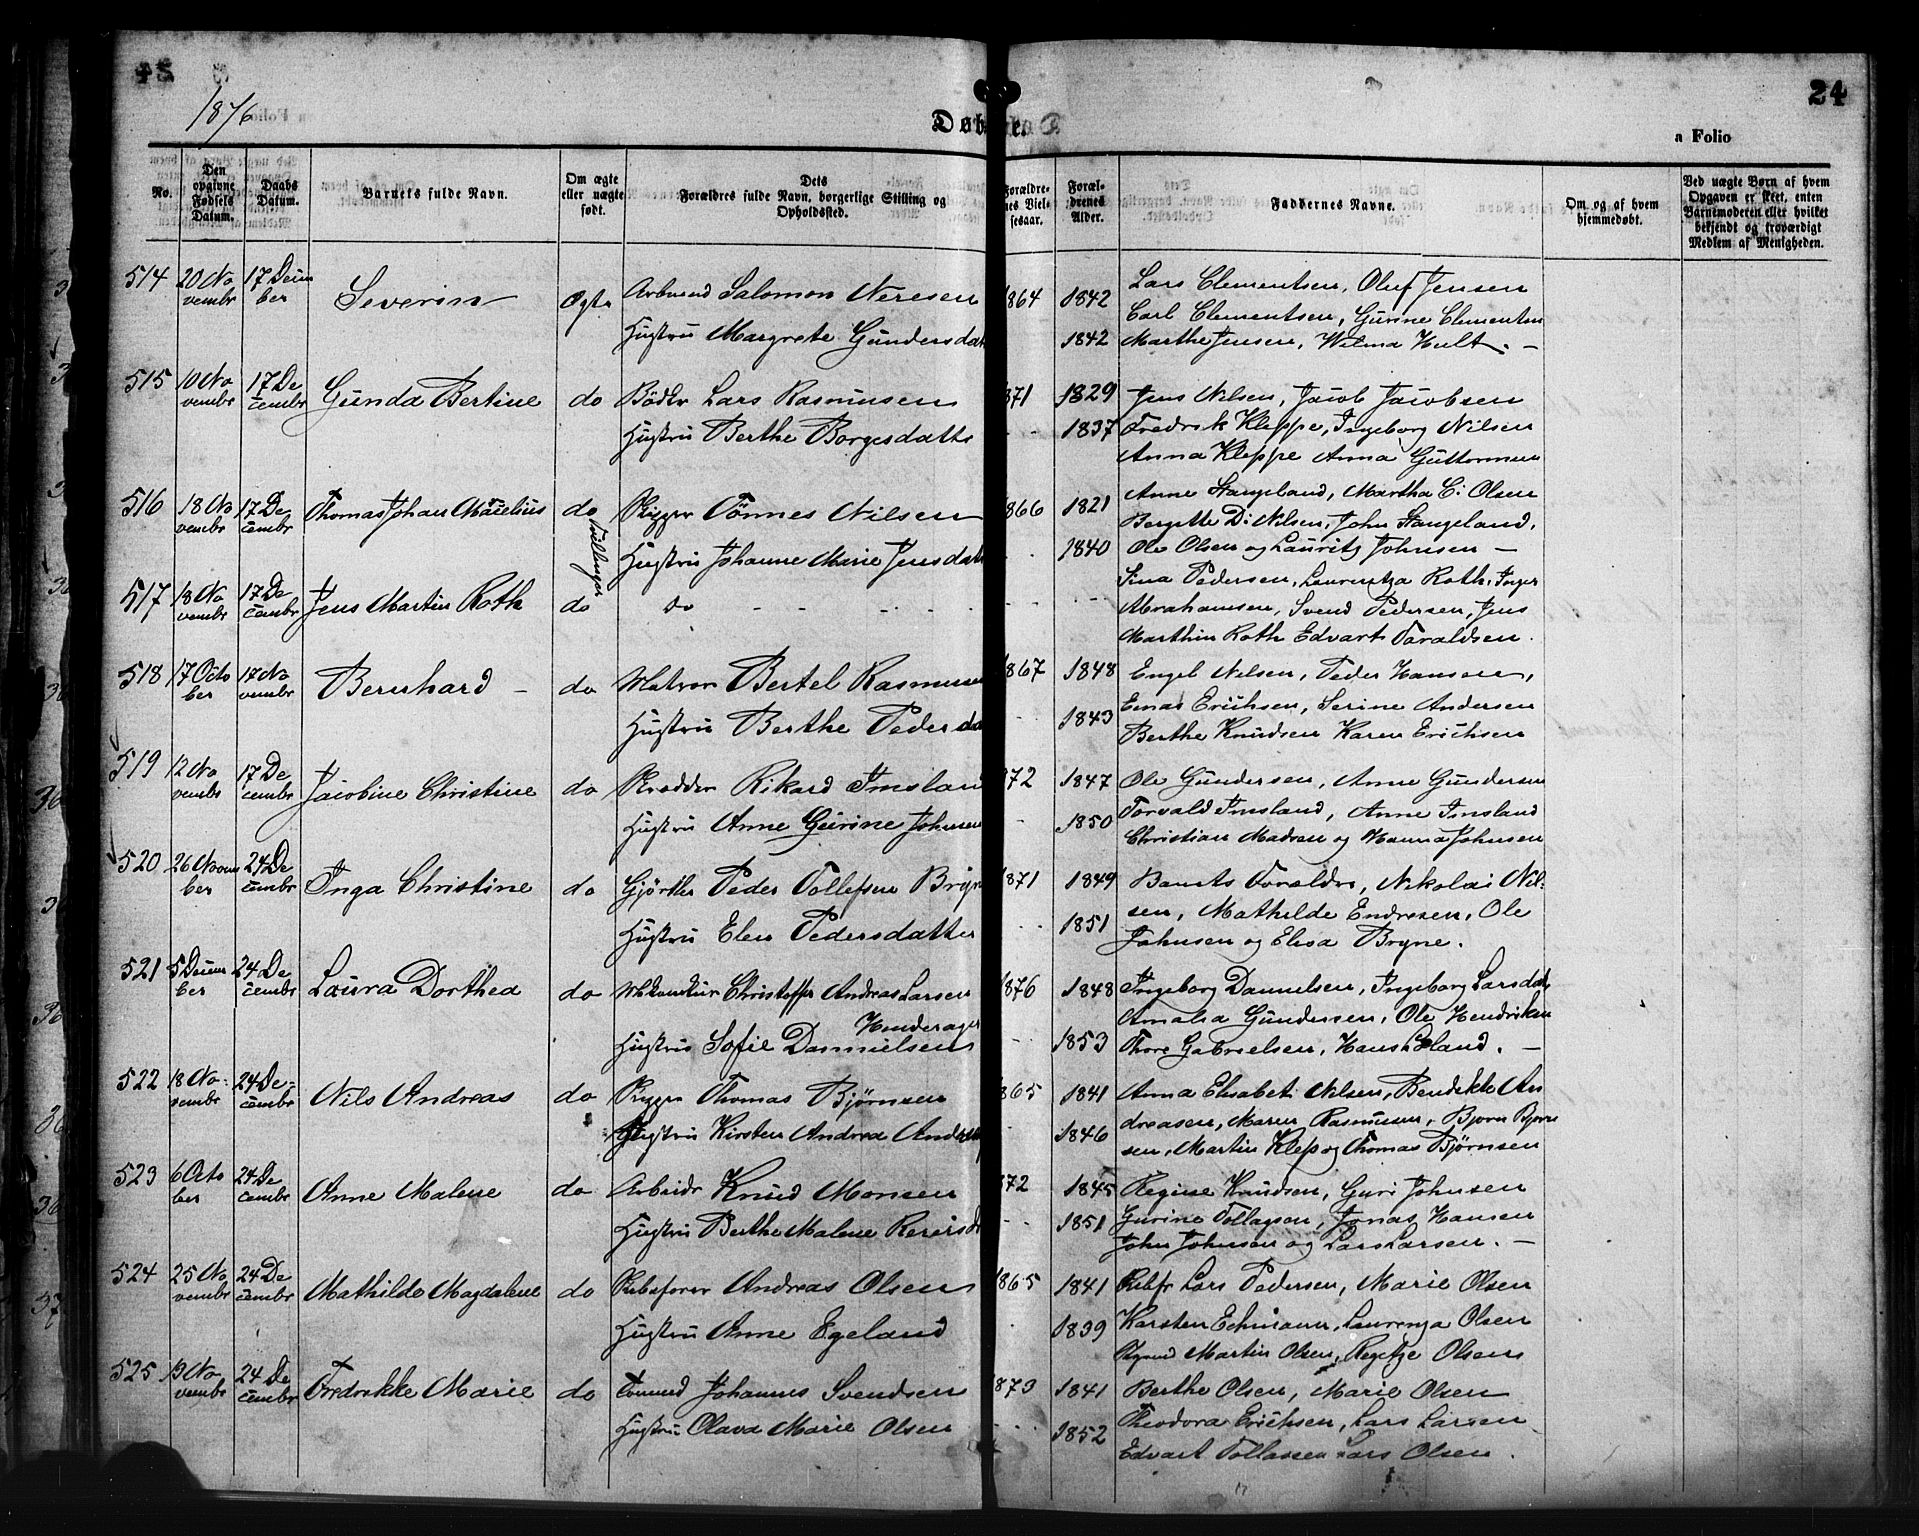 1876
24
Døbte.
a Folio
No.
Den opgivne Fødsels Datum.
Daabs Datum.
Barnets fulde Navn.
Om ægte eller uægte født.
Dets Forældres fulde Navn, borgerlige Stilling og Opholdsted.
Forældrenes Vielsesaar.
Forældrenes Alder.
Faddernes Navne.
Om og af hvem hjemmedøbt.
Ved uægte Børn af hvem Opgaven er skeet, enten Barnemoderen eller hvilket bekjendt og troværdigt Medlem af Menigheden.
514 20 November 17 December Severin Ægte Arbmand Salomon Neresen 1864 1842 Lars Clementsen, Oluf Jensen
Carl Clementsen, Gurine Clementsen
Hustru Margrete Gundersdatt 1842 Marthe Jensen, Wilma Hult. -
515 10 November 17 December Gunda Bertine do Bødker Lars Rasmusen 871 1829 Jens Nilsen, Jacob Jacobsen
Hustru Berthe Borgesdatter 1837 Fredrik Kleppe, Ingeborg Nilsen
Anna Kleppe Anna Guttormsen
516 18 November 17 December Thomas Johan Marelius do Rigger Tönnes Nilsen 866 1821 Anne Stangeland, Martha C. Olsen
Bergitte D. Nilsen, John Stangeland,
Tvillinger Hustru Johanne Marie Jensdatt 1840 Ole Olsen og Lauritz Johnsen -
517 18 November 17 December Jens Martin Roth do do - - - - Sina Pedersen, Laurentza Roth, Inger
Abrahamsen, Svend Pedersen, Jens
Marthin Roth Edvart Taraldsen.
518 17 October 17 November Bernhard - do Matros Bertel Rasmusen 867 1848 Engel Nilsen, Peder Hansen,
Hustru Berthe Pedersda 1843 Enas Erichsen, Serine Andersen
Berthe Knudsen Karen Erichsen
519 12 November 17 December Jacobine Christine do Skrædder Rikard Imsland 872 1847 Ole Gundersen, Anne Gundersen
Hustru Anne Gurine Johnsen 1850 Torvald Imsland, Anne Imsland
Christian Madsen og Hanna Johnsen
520 26 November 24 December Inga Christine do Gjørtler Peder Tollefsen Bryne 1871 1849 Barnets Forældre, Nikolai Nil-
Hustru Elen Pedersdatter 1851 sen, Mathilde Endresen, Ole
Johnsen og Elisa Bryne.
521 5 December 24 December Laura Dorthea do Christoffer Andreas Larsen 1876 1848 Ingeborg Danielsen, Ingeborg Larsdatt
Amalia Gundersen, Ole Hendriksen
Hustru Sofie Danielsen 1853 Thore Gabrielsen, Hans Leland. -
522 18 November 24 December Nils Andreas do Rigger Thomas Bjørnsen 865 1841 Anna Elisabet Nilsen, Bendikte An
Hustru Kirsten Andrea Anders 1846 dreasen, Maren Rasmusen, Bjørn Bjørn
sen, Martin Klep og Thomas Bjørnsen
523 6 October 24 December Anne Malene do Arbeider Knud Monsen 872 1845 Regine Knudsen, Guri Johnsen
Hustru Berthe Malene Reiersd 1851 Gurine Tollagsen, Jonas Hansen
John Johnsen og Lars Larsen. -
524 25 November 24 December Mathilde Magdalene do Skibsfører Andreas Olsen 1865 1841 Skibsf Lars Pedersen, Marie Olsen
Hustru Anne Egeland 1839 Karsten Echmann, Laurenza Olsen
Martin Olsen, Regitze Olsen
525 13 November 24 December Fredrekke Marie do Tommd Johannes Svendsen 873 1841 Berthe Olsen, Marie Olsen
Hustru Olava Marie Olsen 1852 Theodora Erichsen, Lars Larsen
Edvart Tollassen Lars Olsen.